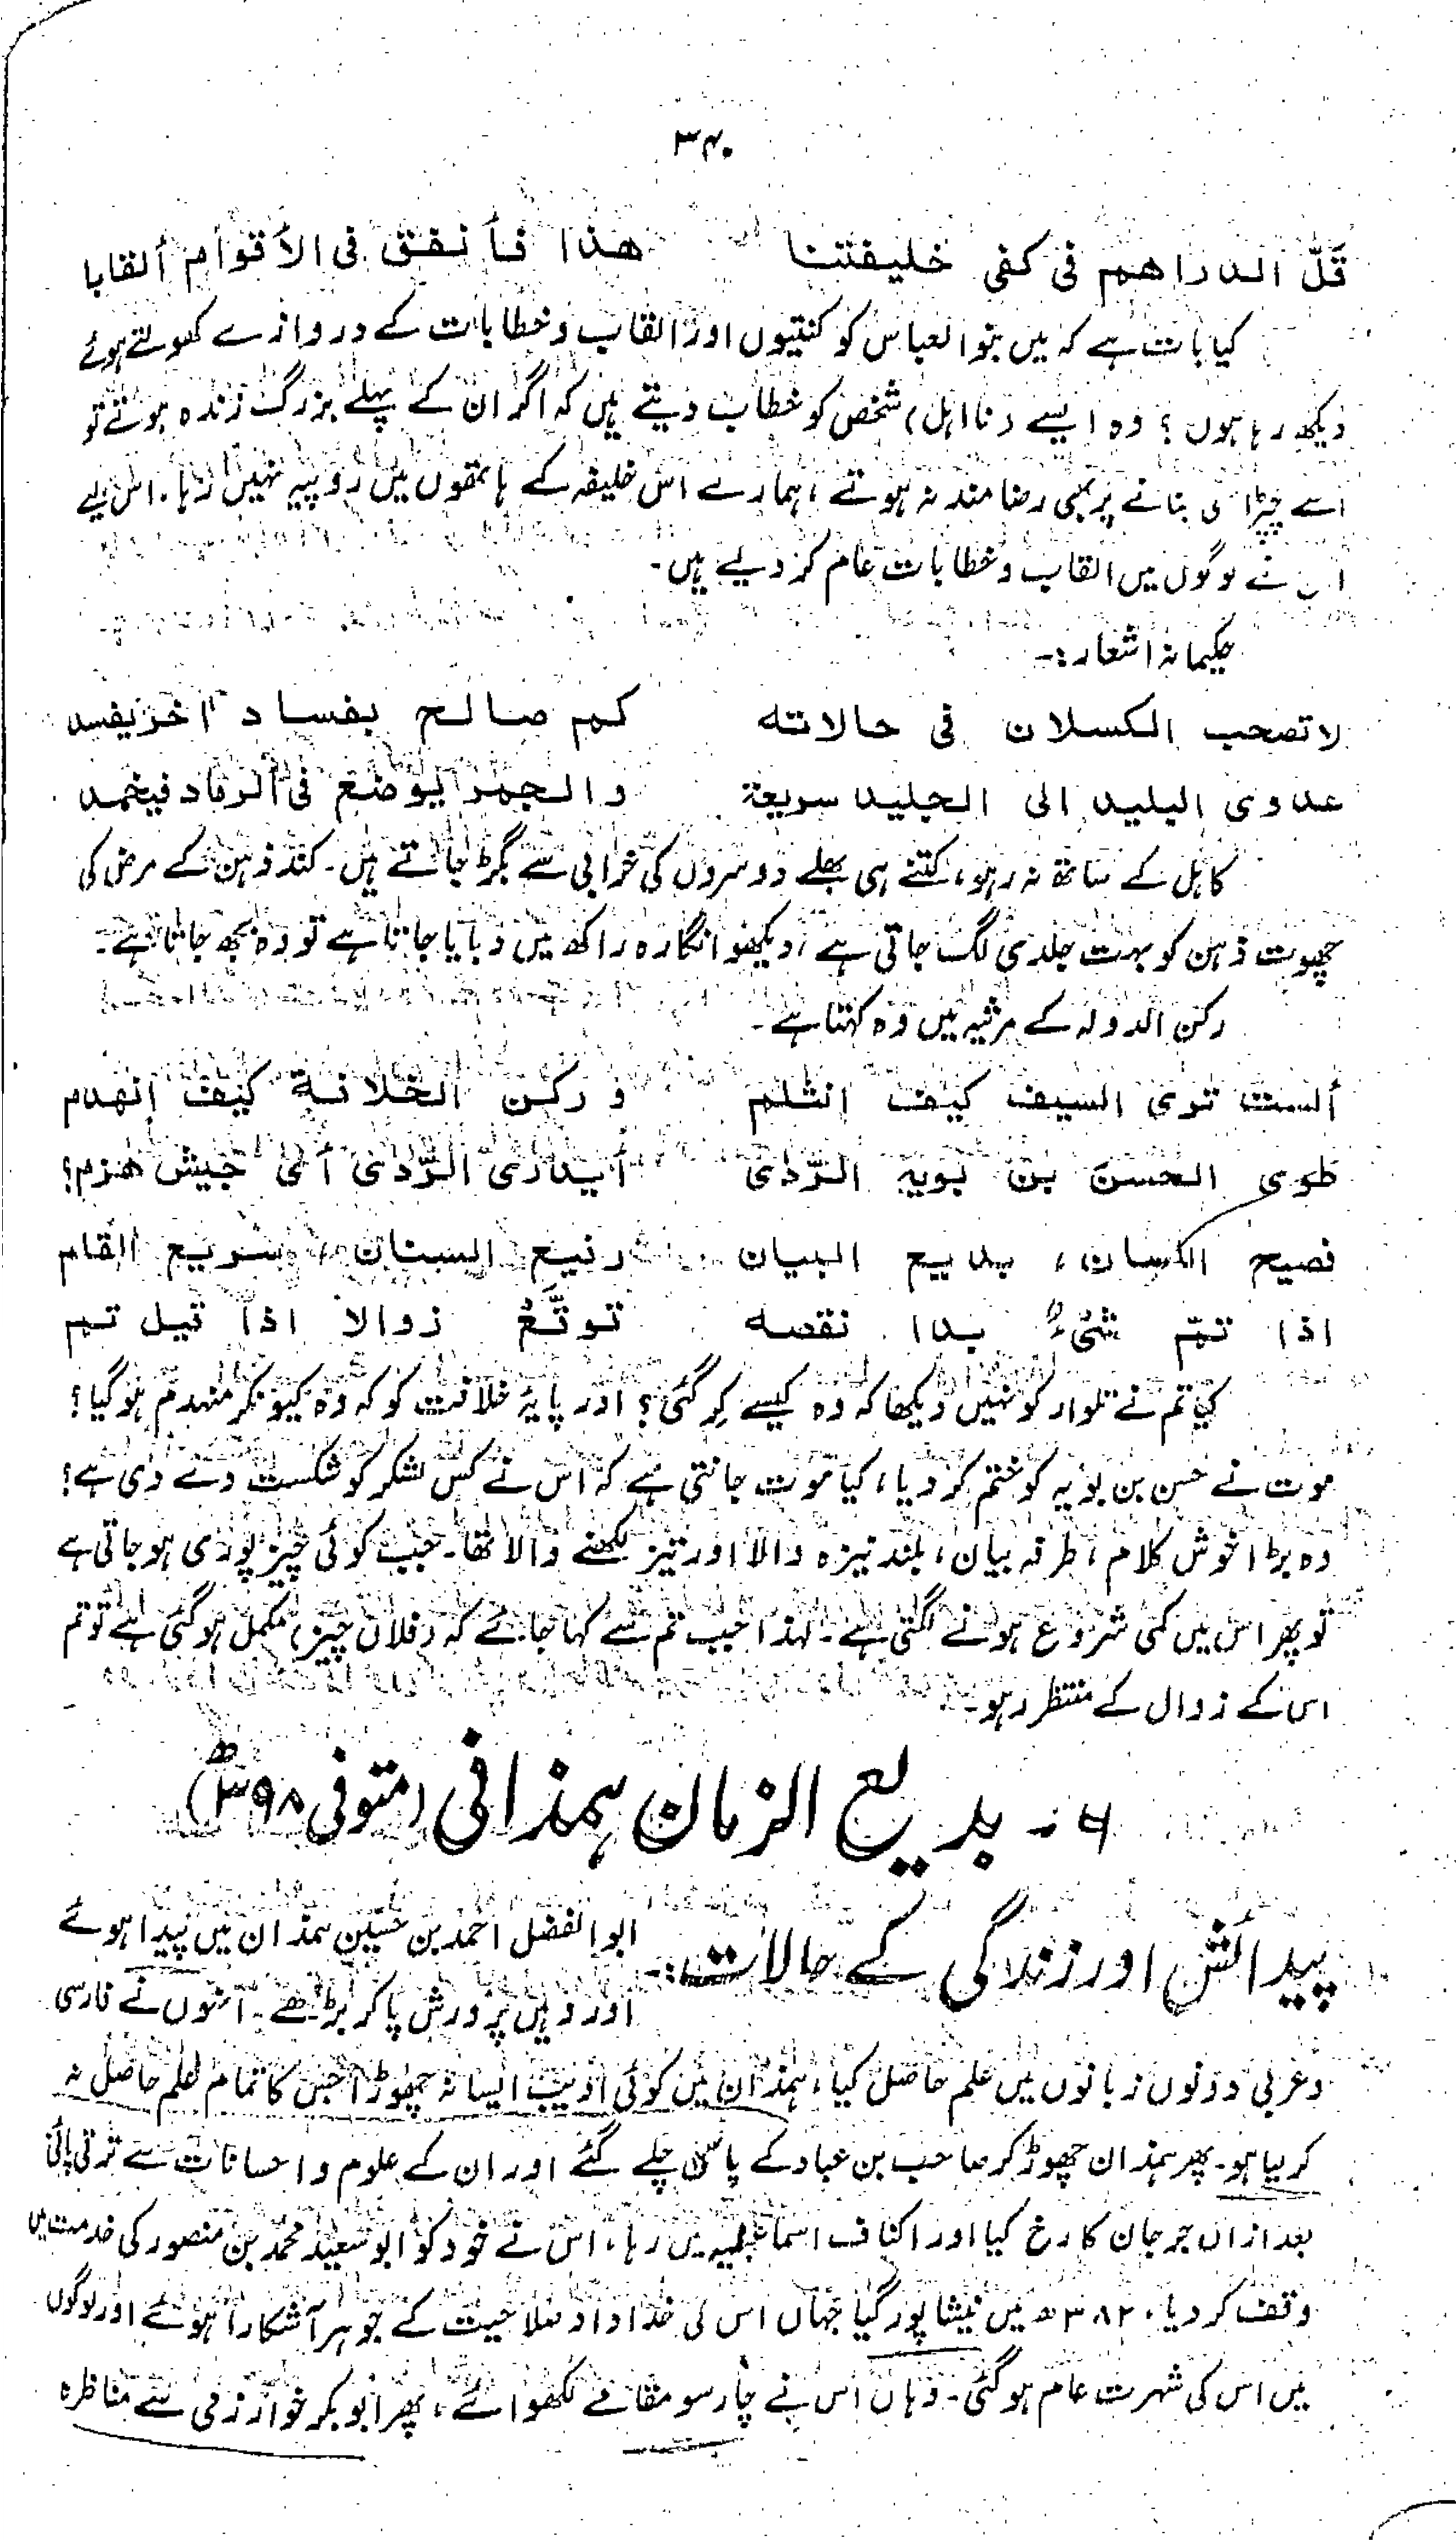 ۳۴۰
قَلَّ الدراهم فى كفى خليفتنا هذا فأنفق فى الأقوام ألقابا
کیا بات ہے کہ میں بنو العباس کو کنیتوں اور القاب و خطابات کے دروازے کھولتے ہوئے
دیکھ رہا ہوں؟ وہ ایسے (نااہل) شخص کو خطاب دیتے ہیں کہ اگر ان کے پہلے بزرگ زندہ ہوتے تو
اسے چپڑاسی بنانے پر بھی رضامند نہ ہوتے، ہمارے اس خلیفہ کے ہاتھوں میں روپیہ نہیں رہا۔ اس لیے
اس نے لوگوں میں القاب و خطابات عام کر دیے ہیں۔
حکیمانہ اشعار:۔
لا تصحب الكسلان فى حالاته كم صالح بفساد آخر يفسد
عدوى البليد الى الجليد سريعة والجمر يوضع فى الرماد فيخمد
کاہل کے ساتھ نہ رہو، کتنے ہی بھلے دوسروں کی خرابی سے بگڑ جاتے ہیں۔ کند ذہن کے مرض کی
چھوت ذہن کو بہت جلدی لگ جاتی ہے، دیکھو انگارہ راکھ میں دبایا جاتا ہے تو وہ بجھ جاتا ہے۔
رکن الدولہ کے مرثیہ میں وہ کہتا ہے۔
ألست ترى السيف كيف انثلم و ركن الخلافة كيف انهدم
طوى الحسن بن بويه الرّدى أيدرى الرّدى أىّ جيش هزم؟
فصيح اللسان، بديع البيان رفيع السنان، سريع القلم
اذا تمّ شئٌ بدا نقصه توقّع زوالا اذا قيل تم
کیا تم نے تلوار کو نہیں دیکھا کہ وہ کیسے کِر گئی؟ اور پایۂ خلافت کو کہ وہ کیونکر منہدم ہو گیا؟
موت نے حسن بن بویہ کو ختم کر دیا، کیا موت جانتی ہے کہ اس نے کس لشکر کو شکست دے دی ہے؟
وہ بڑا خوش کلام، طرفہ بیان، بلند نیزہ والا اور تیز لکھنے والا تھا۔ جب کوئی چیز پوری ہو جاتی ہے
تو پھر اس میں کمی شروع ہونے لگتی ہے۔ لہذا جب تم سے کہا جائے کہ (فلاں چیز) مکمل ہو گئی ہے تو تم
اس کے زوال کے منتظر رہو۔
۶۔ بدیع الزمان ہمذانی (متوفی ۳۹۸ھ)
پیدائش اور زندگی کے حالات:۔ ابوالفضل احمد بن حسین ہمذان میں پیدا ہوئے
اور وہیں پرورش پا کر بڑھے۔ انہوں نے فارسی
و عربی دونوں زبانوں میں علم حاصل کیا، ہمذان میں کوئی ادیب ایسا نہ چھوڑا جس کا تمام علم حاصل نہ
کر لیا ہو۔ پھر ہمذان چھوڑ کر صاحب بن عباد کے پاس چلے گئے اور ان کے علوم و احسانات سے ترقی پائی
بعد ازاں جرجان کا رخ کیا اور اکناف اسماعیلیہ میں رہا، اس نے خود کو ابو سعید محمد بن منصور کی خدمت میں
وقف کر دیا، ۳۸۲ھ میں نیشاپور گیا جہاں اس کی خداداد صلاحیت کے جوہر آشکارا ہوئے اور لوگوں
میں اس کی شہرت عام ہو گئی۔ وہاں اس نے چار سو مقامے لکھوائے، پھر ابوبکر خوارزمی سے مناظرہ